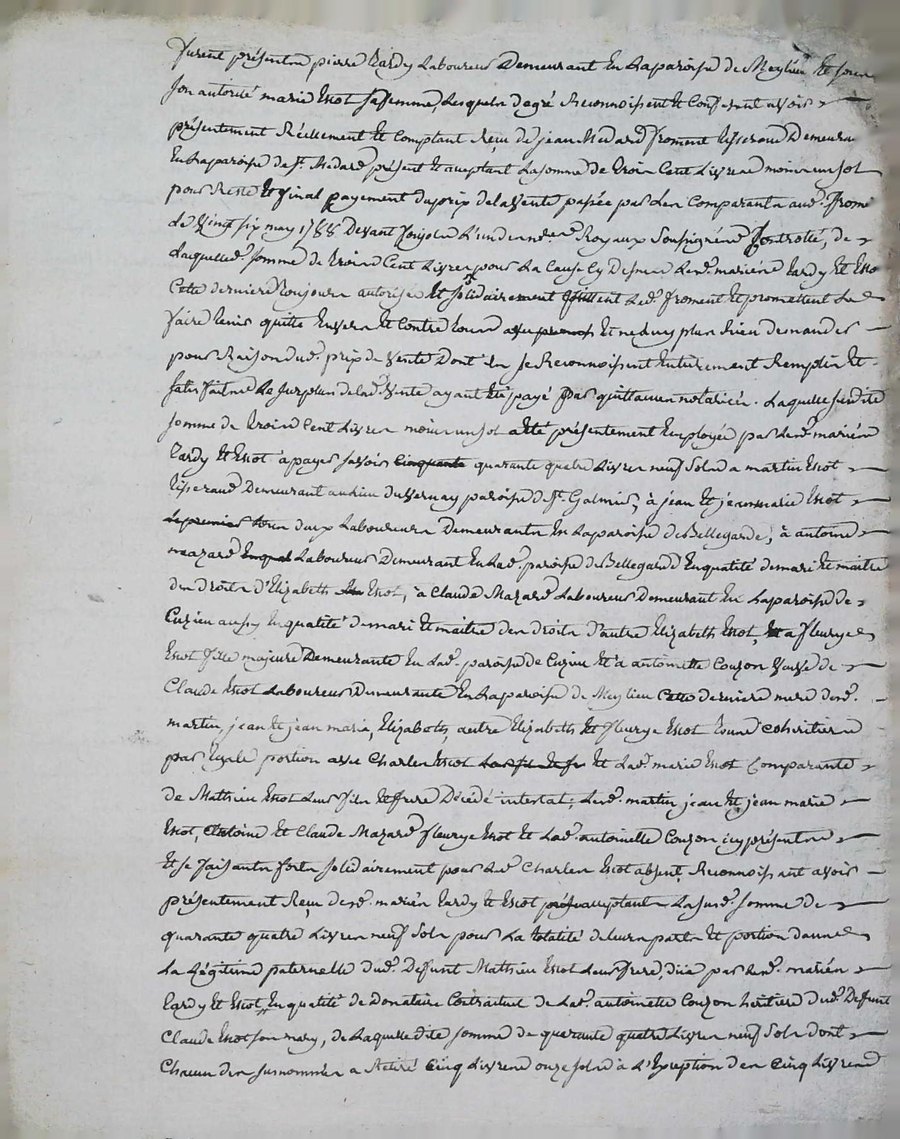 furent présents pierre Tardy Laboureur Demeurant En Laparoisse de Meylieu Et sous
son autorité marie Escot safemme Lesquels degré Reconnoissent Et Confessent avoir
présentement Réellement Et Comptant Reçu de jean Medard froment tisserand Demeura
En Laparoisse de St. Medard présent Et aceptant Lasomme de trois Cent Livres moins un sol
pour Reste Et final payement duprix delavente passée par Les Comparants aud. From
Le Vingt six may 1788 Devant L'un des nores. Royaux Soussignés Controllé, de
Laquelle. somme de trois Cent Livres pour La Cause cy Dessus Lesd. mariés Tardy Et Esco
Cette derniere toujours autorisée Et solidairement quittent Led. froment Et promettent Le
faire tenir quitte Envers Et Contre tous Et ne luy plus Rien demander
pour Raison dud. prix de Vente Dont ils se Reconnoissent Entierement Remplis Et
satisfaits Le surplus delad. Vente ayant Eté payé par quittances notariées. Laquelle susdite
somme de trois Cent Livres moins un sol a Eté présentement Employée par Lesd. mariés
Tardy Et Escot à payer savoir cinquante quarante quatre Livres neuf Sols a martin Escot
tisserand Demeurant au Lieu duVernay paroisse de St. Galmier, à jean Et jeanmarie Escot
tous deux Laboureurs Demeurants En Laparoisse de Bellegarde, à antoine
mazard Laboureur Demeurant En Lad. paroisse de Bellegarde En qualité demari Et maitre
des droits d'Elizabeth Escot, à Claude Mazard Laboureur Demeurant En Laparoisse de
Cuzieu aussy En qualité demari Et maitre des droits d'autre Elizabeth Escot, Et a fleurye
Escot fille majeure Demeurante En Lad. paroisse de Cuzieu Et à antoinette Couzon Veuve de
Claude Escot Laboureur demeurante En Laparoisse de Meylieu Cette derniere mere desd.
martin, jean Et jean marie, Elizabeth, autre Elizabeth Et fleurye Escot tous Cohéritiers
par Egale portion avec Charles Escot Et Lad. marie Escot Comparante
de Mathieu Escot Leur fils Et frere Décédé intestat; Lesd. martin jean Et jean marie
Escot, Antoine Et Claude Mazard fleurye Escot Et Lad. antoinette Couzon icy présents
Et se faisants forts solidairement pour Led. Charles Escot absent, Reconnoissent avoir
présentement Reçu desd. mariés Tardy Et Escot Lasusd. somme de
quarante quatre Livres neuf Sols pour La totalité de Leurs parts Et portion dans
La Légitime paternelle dud. Defunt Mathieu Escot Leur frere, düe par Lesd. mariés
Tardy Et Escot En qualité de Donataire Contractuel de Lad. antoinette Couzon héritiere dud. Defunt
Claude Escot son mary, de Laquelle dite somme de quarante quatre Livres neuf Sols dont
Chacun des surnommés a Retiré Cinq Livres onze sols à L'Exception des Cinq Livres